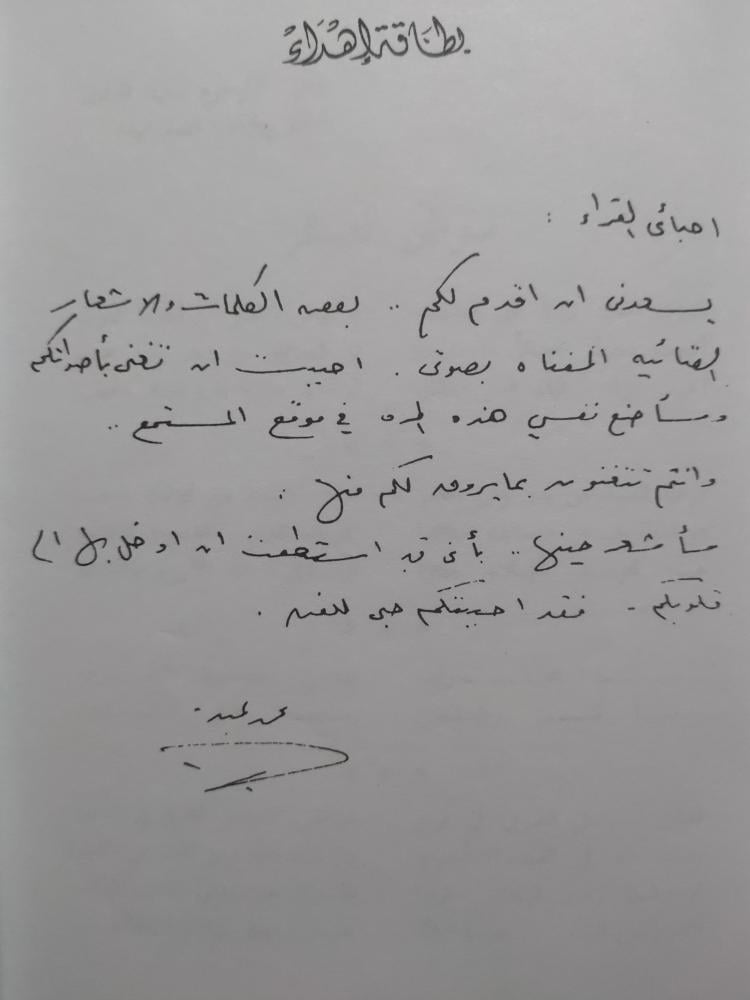 بطاقة إهداء
احبائى القراء :
يسعدنى ان اقدم لكم .. بعض الكلمات والاشعار
الغنائيه المغناه بصوتى . احببت ان تتغنى بأصواتكم
وسأضع نفسي هذه المره في موقع المستمع ..
وانتم تتغنون بما يروق لكم منها .
سأشعر حينها .. بأنى قد استطعت ان ادخل بها الى
قلوبكم . فقد احببتكم حبى للفن .